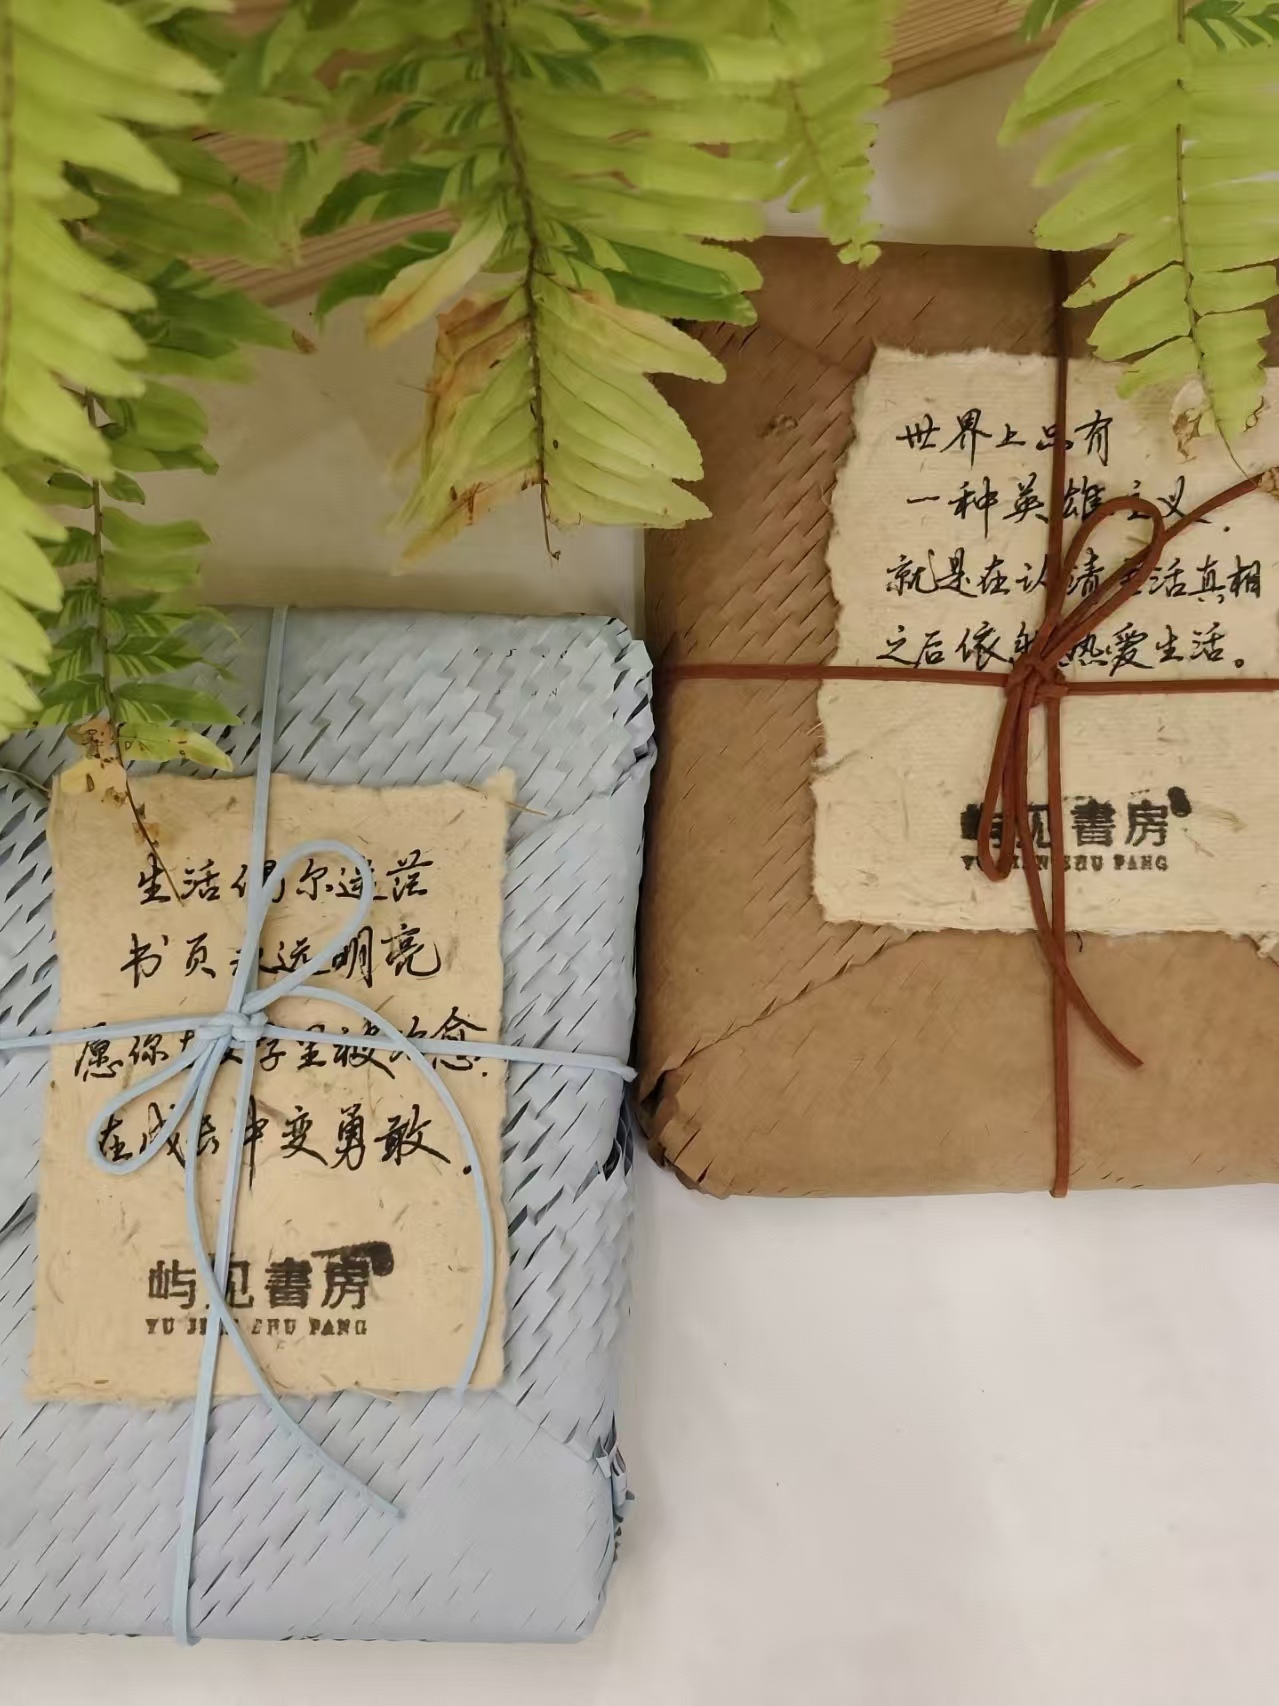 生活偶尔迷茫
书页永远明亮
愿你在文字里被治愈.
在成长中变勇敢.
屿见書房
YU JIAN SHU FANG
世界上只有
一种英雄主义.
就是在认清生活真相
之后依然热爱生活。
屿见書房
YU JIAN SHU FANG